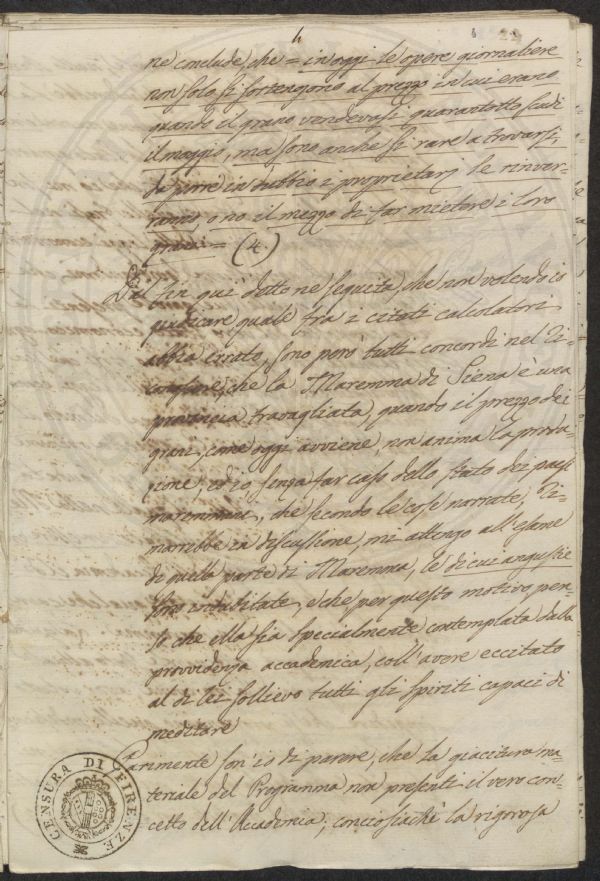 4
22
ne conclude che = in oggi le opere giornaliere
non solo si sostengono al prezzo in cui erano
quando il grano vendevasi quarantotto scudi
il moggio, ma sono anche sì rare a trovarsi,
da porre in dubbio i proprietarj se rinver-
ranno, o no il mezzo di far mietere i loro
grani = (4)
Dal fin quì detto ne seguita, che non volendo io
giudicare quale fra i citati calcolatori
abbia errato, sono però tutti concordi nel
che la Maremma di Siena è una
provincia travagliata, quando il prezzo dei
grani, come oggi avviene, non anima la
ed io senza far caso dello stato dei paesi
maremmani, che secondo le cose narrate, ri-
marrebbe in discussione, mi attengo all'esame
di quella parte di Maremma, le di cui angustie
sono indubitate, e che per questo motivo pen-
so che ella sia specialmente contemplata dalla
providenza accademica, coll'avere eccitato
al di lei sollievo tutti gli spiriti capaci di
meditare
Parimente son'io di parere, che la giacitura ma-
teriale del Programma non presenti il vero con-
cetto dell'Accademia; conciosiachè la rigorosa
CENSURA DI FIRENZE